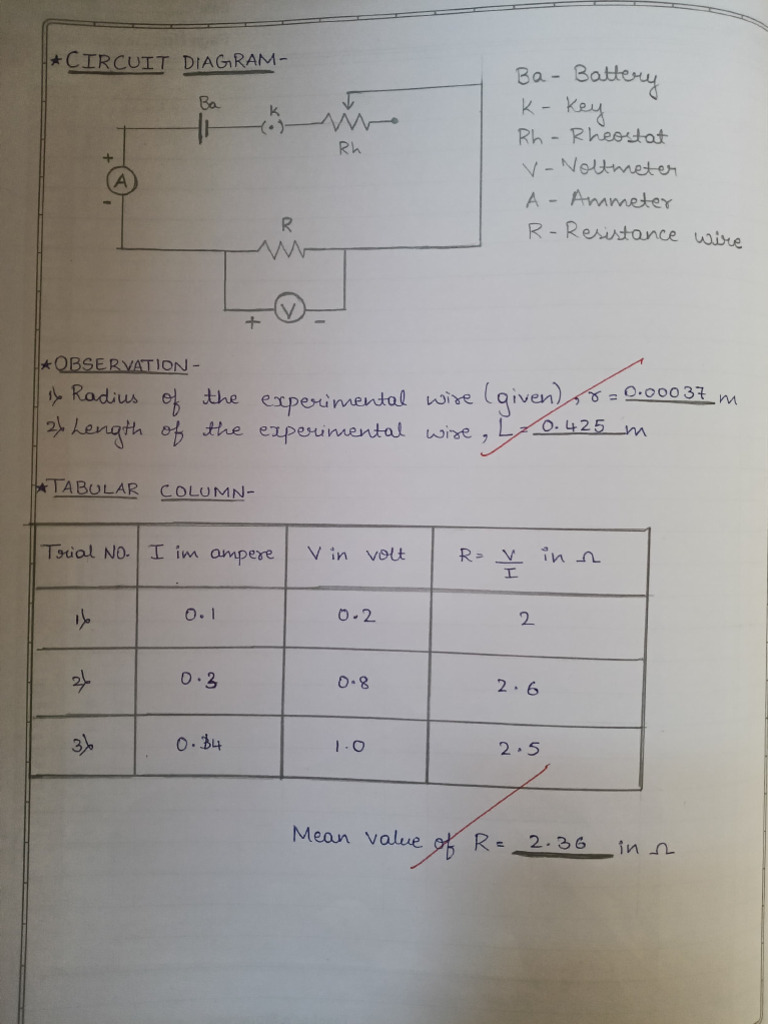 ★ CIRCUIT DIAGRAM-
Ba
K
Rh
+
A
-
R
V
+ -
Ba - Battery
K - Key
Rh - Rheostat
V - Voltmeter
A - Ammeter
R - Resistance wire
★ OBSERVATION -
1) Radius of the experimental wire (given), r = 0.00037 m
2) Length of the experimental wire, L = 0.425 m
★ TABULAR COLUMN-
Trial NO. I im ampere V in volt R = V/I in Ω
1) 0.1 0.2 2
2) 0.3 0.8 2.6
3) 0.4 1.0 2.5
Mean value of R = 2.36 in Ω